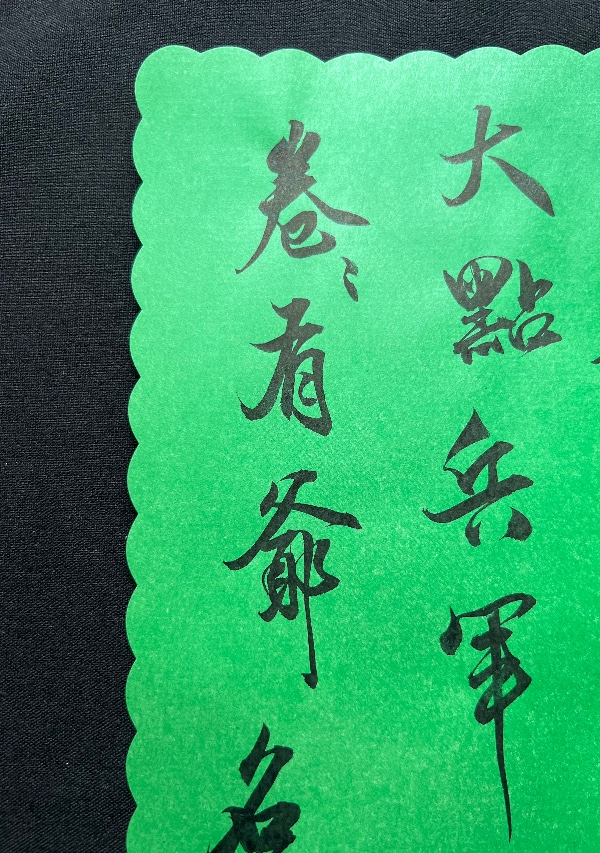 大點兵軍
卷〻有爺名